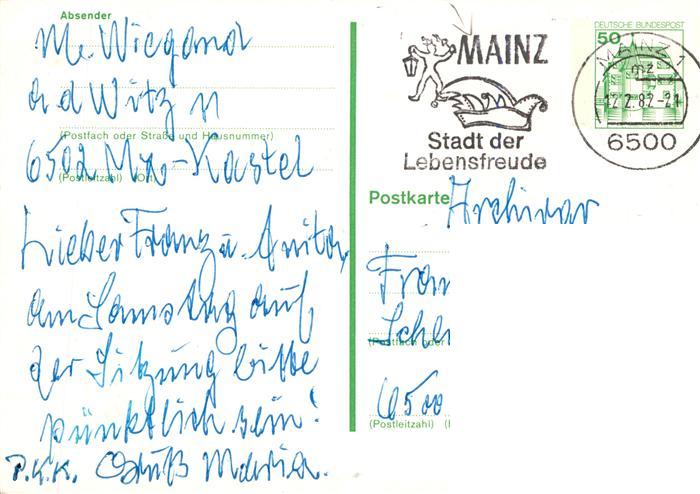 Absender
M. Wiegand
a d Witz 11
(Postfach oder Straße und Hausnummer)
6502 Mz-Kastel
(Postleitzahl) (Ort)
Lieber Franz u. Anita,
am Samstag auf
der Sitzung bitte
pünktlich sein!
P.K.K. Gruß Maria.
MAINZ
Stadt der
Lebensfreude
DEUTSCHE BUNDESPOST
50
MAINZ 1
mz
12.2.82-21
6500
Postkarte
Archivar
Fran
Schl
(Postfach oder
6500
(Postleitzahl) (